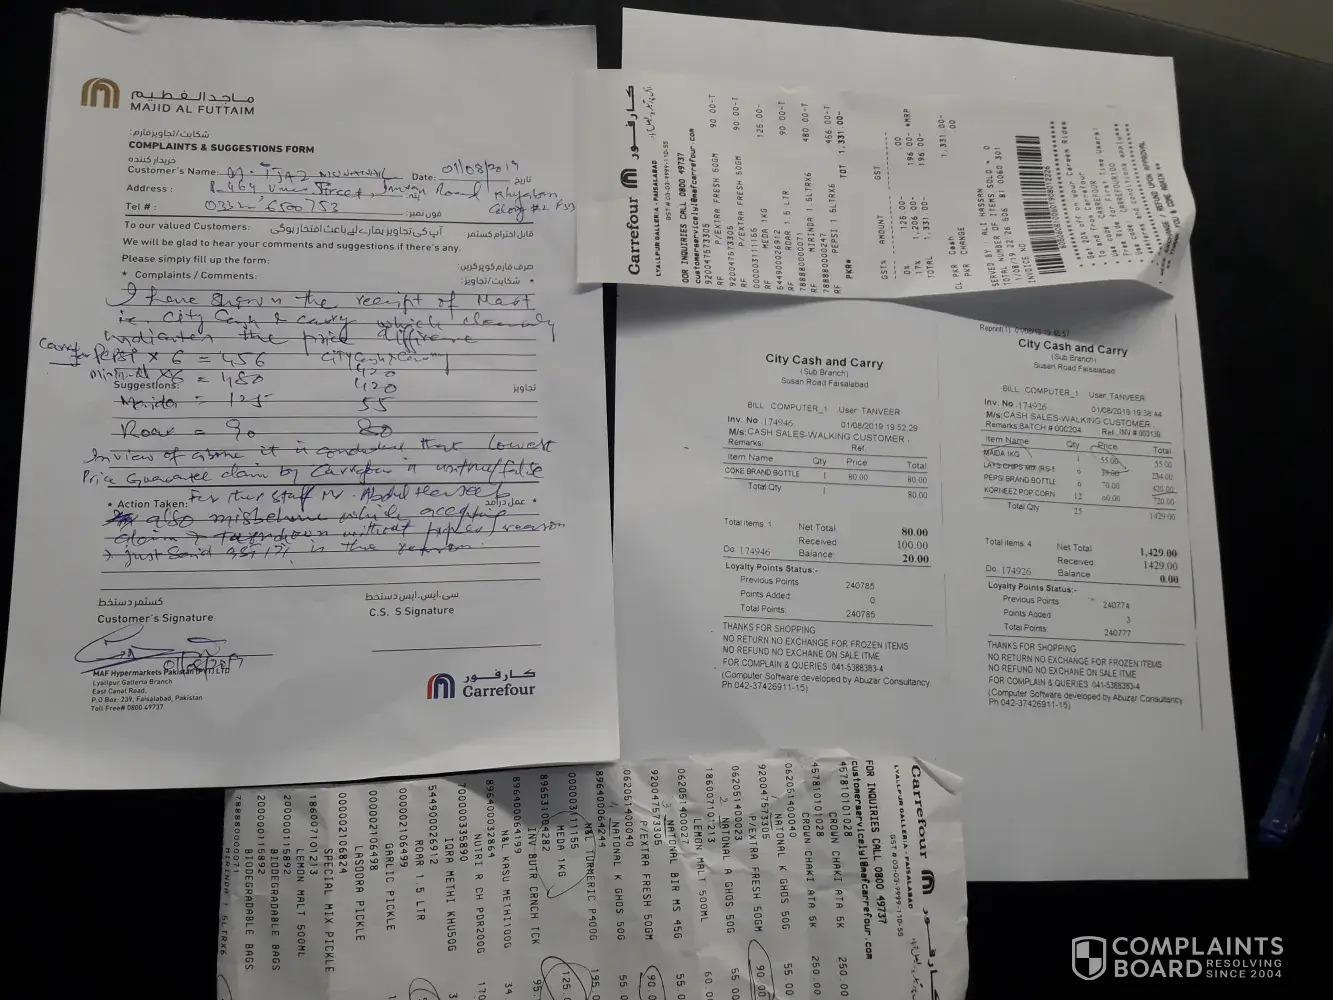 ماجد الفطيم
MAJID AL FUTTAIM
شكایت/تجاویز فارم:
COMPLAINTS & SUGGESTIONS FORM
خریدار کننده
Customer's Name: Date: 01/08/2019 تاریخ
Address : پتہ:
Tel # : 0332 6500753 فون نمبر:
To our valued Customers: آپ کی تجاویز ہمارے لیے باعث افتخار ہوگی قابل احترام کسٹمر:
We will be glad to hear your comments and suggestions if there's any.
Please simply fill up the form: صرف فارم کو پر کریں:
* Complaints / Comments: شکایت/تجاویز: *
I have shown the receipt of Most
i.e. City Cash & carry which clearly
indicates the price difference
PEPSI x 6 = 456 City Cash & Carry
420
x6 = 480
Suggestions: 420 تجاویز
= 125 55
Roar = 90 80
In view of above it is concluded that lowest
Price Guarantee claim by Carrefour is untrue/false
* Action Taken: For this staff Mr. Abdul Haseeb عمل درآمد *
also misbehave while accepting
claim & without proper reason
& just said is the reason.
کسٹمر دستخط سی.ایس.ایس دستخط
Customer's Signature C.S. S Signature
01/08/2019
MAF Hypermarkets Pakistan (PVT) LTD
Lyallpur Galleria Branch
East Canal Road,
P.O Box-239, Faisalabad, Pakistan
Toll Free# 0800 49737
كارفور
Carrefour
كارفور
Carrefour
LYALLPUR GALLERIA - FAISALABAD
GST # 03-03-9999-110-55
FOR INQUIRIES CALL 0800 49737
customerservicelyl@mafcarrefour.com
920047573305 P/EXTRA FRESH 50GM 90.00-T
RF
920047573305 P/EXTRA FRESH 50GM 90.00-T
RF
000003111165 MEDA 1KG 125.00-
RF
544900026912 ROAR 1.5 LTR 90.00-T
RF
788880000071 MIRINDA 1.5LTRX6 480.00-T
RF
788880000247 PEPSI 1.5LTRX6 456.00-T
RF
PKR* TOT 1,331.00-
GST% AMOUNT GST +MRP
0% 125.00- .00
17% 1,206.00- 196.00-
TOTAL 1,331.00- 196.00-
CL PKR Cash 1,331.00-
PKR CHANGE .00
SERVED BY : ALI HASSAN
TOTAL NUMBER OF ITEMS SOLD = 0
1/08/19 22:26 606 81 0060 301
INVOICE NO
City Cash and Carry
(Sub Branch)
Susan Road Faisalabad
BILL COMPUTER_1 User TANVEER
Inv. No. 174946 01/08/2019 19:52:29
M/s: CASH SALES-WALKING CUSTOMER,
Remarks: Ref.
Item Name Qty Price Total
COKE BRAND BOTTLE 1 80.00 80.00
Total Qty 1 80.00
Total items. 1 Net Total 80.00
Received 100.00
Do. 174946 Balance: 20.00
Loyalty Points Status:-
Previous Points 240785
Points Added: 0
Total Points: 240785
THANKS FOR SHOPPING
NO RETURN NO EXCHANGE FOR FROZEN ITEMS
NO REFUND NO EXCHANE ON SALE ITME
FOR COMPLAIN & QUERIES 041-5388383-4
(Computer Software developed by Abuzar Consultancy
Ph 042-37426911-15)
City Cash and Carry
(Sub Branch)
Susan Road Faisalabad
BILL COMPUTER_1 User TANVEER
Inv. No. 174926 01/08/2019 19:38:44
M/s: CASH SALES-WALKING CUSTOMER,
Remarks BATCH # 000204 Ref. INV # 003139
Item Name Qty Price Total
MAIDA 1KG 1 55.00 55.00
LAYS CHIPS MIX (RS-5 6 39.00 234.00
PEPSI BRAND BOTTLE 6 70.00 420.00
KORNEEZ POP CORN 12 60.00 720.00
Total Qty 25 1429.00
Total items. 4 Net Total 1,429.00
Received: 1429.00
Do. 174926 Balance 0.00
Loyalty Points Status:-
Previous Points 240774
Points Added 3
Total Points: 240777
THANKS FOR SHOPPING
NO RETURN NO EXCHANGE FOR FROZEN ITEMS
NO REFUND NO EXCHANE ON SALE ITME
FOR COMPLAIN & QUERIES 041-5388383-4
(Computer Software developed by Abuzar Consultancy
Ph 042-37426911-15)
Carrefour
LYALLPUR GALLERIA - FAISALABAD
GST # 03-03-9999-110-55
FOR INQUIRIES CALL 0800 49737
customerservicelyl@mafcarrefour.com
45781010102​8 CROWN CHAKI ATA 5K 250.00
457810101028 CROWN CHAKI ATA 5K 250.00
062051400040 NATIONAL K GHOS 50G 55.00
920047573305 P/EXTRA FRESH 50GM 90.00
062051400023 NATONAL A GHOS 50G 55.00
186007101213 LEMON MALT 500ML 60.00
062051400027 NATONAL BIR MS 45G 55.0
920047573305 P/EXTRA FRESH 50GM 90.0
062051400040 NATIONAL K GHOS 50G 55.0
896400064244 M&L TURMERIC P400G 195.0
000003111165 MEDA 1KG 125.0
896531004282 INV BUTR CRNCH TCK 95.
896400064199 M&L KASU METHI100G 34
896400032864 NUTRI R CH PDR200G 170
700000335890 IQRA METHI KHU50G 3
544900026912 ROAR 1.5 LTR
000002106499 GARLIC PICKLE
000002106498 LASODRA PICKLE
000002106824 SPECIAL MIX PICKLE
186007101213 LEMON MALT 500ML
200000115892 BIODEGRADABLE BAGS
200000115892 BIODEGRADABLE BAGS
788880000071 MIRINDA 1.5LTRX6
COMPLAINTS
BOARD RESOLVING SINCE 2004